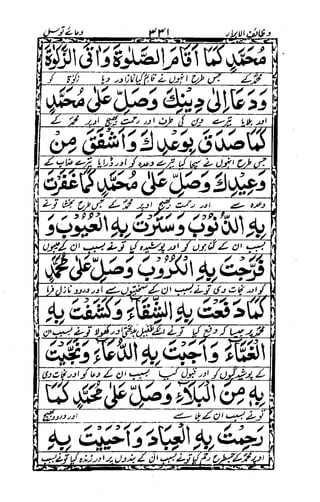 وظائف الابرار ۳۳۱ دعائے توسل
مُحَمَّدٍ كَمَا أَقَامَ الصَّلٰوةَ وَاٰتَى الزَّكٰوةَ
محمد کے جس طرح انہوں نے قائم کیا نماز اور دیا زکوٰۃ کو
وَدَعَا إِلٰى دِيْنِكَ وَصَلِّ عَلٰى مُحَمَّدٍ
اور بلایا تیرے دین کی طرف اور رحمت بھیج اوپر محمد کے
كَمَا صَدَقَ بِوَعْدِكَ وَاَشْفَقَ مِنْ
جس طرح انہوں نے سچا کیا تیرے وعدہ کو اور ڈرایا تیرے عذاب کے
وَعِيْدِكَ وَصَلِّ عَلٰى مُحَمَّدٍ كَمَا غَفَرْتَ
وعدہ سے اور رحمت بھیج اوپر محمد کے جس طرح بخشا تونے
بِهِ الذُّنُوْبَ وَسَتَرْتَ بِهِ الْعُيُوْبَ وَ
بسبب ان کے گناہوں کو اور پوشیدہ کیا تونے بسبب ان کے عیبوں
فَرَّجْتَ بِهِ الْكُرُوْبَ وَصَلِّ عَلٰى مُحَمَّدٍ
کو اور نجات دی تونے بسبب ان کے سختیوں سے اور درود نازل فرما
كَمَا دَفَعْتَ بِهِ الشَّقَاءَ وَكَشَفْتَ بِهِ
محمد پر جیسا کہ دفع کیا تونے انکے طفیل بدبختی کو اور کھولا تونے بسبب ان
الْغَمَّاءَ وَاَجَبْتَ بِهِ الدُّعَاءَ وَنَجَّيْتَ
کے اور قبول کیا بسبب ان کے دعا کو اور نجات دی
بِهِ مِنَ الْبَلَاءِ وَصَلِّ عَلٰى مُحَمَّدٍ كَمَا
تونے بسبب ان کے بلا سے اور درود بھیج
رَحِمْتَ بِهِ الْعِبَادَ وَاَحْيَيْتَ بِهِ
اوپر محمد کے جس طرح رحم کیا تونے بسبب ان کے بندوں پر اور زندہ کیا تونے بسبب